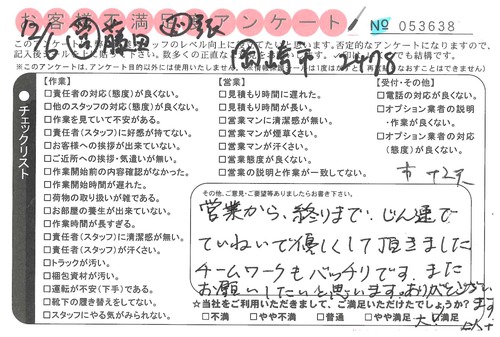 お客様不満足度アンケート
№ 053638
12/6 営 藤田 国張
岡崎市 2478
【作業】
□責任者の対応(態度)が良くない。
□他のスタッフの対応(態度)が良くない。
□作業を見ていて不安がある。
□責任者(スタッフ)に好感が持てない。
□お客様への挨拶が出来ていない。
□ご近所への挨拶・気遣いが無い。
□作業開始前の内容確認がなかった。
□作業開始時間が遅れた。
□荷物の取り扱いが雑である。
□お部屋の養生が出来ていない。
□作業時間が長すぎる。
□責任者(スタッフ)に清潔感が無い。
□責任者(スタッフ)が汗くさい。
□トラックが汚い。
□梱包資材が汚い。
□運転が不安(下手)である。
□靴下の履き替えをしてない。
□スタッフにやる気がみられない。
【営業】
□見積もり時間に遅れた。
□見積もり時間が長い。
□営業マンに清潔感が無い。
□営業マンが煙草くさい。
□営業マンが汗くさい。
□営業態度が良くない。
□営業の説明と作業が一致してない。
【受付・その他】
□電話の対応が良くない。
□オプション業者の説明
・作業が良くない。
□オプション業者の対応
(態度)が良くない。
チェックリスト
その他、ご意見・ご要望等ありましたらお書き下さい。
営業から、終りまで、じん速で
ていねいで優しくして頂きました
チームワークもバッチリです。また
お願いしたいと思います。ありがとうござい
ます
☆当社をご利用いただきまして、ご満足いただけたでしょうか?
□不満 □やや不満 □普通 □やや満足 □満足